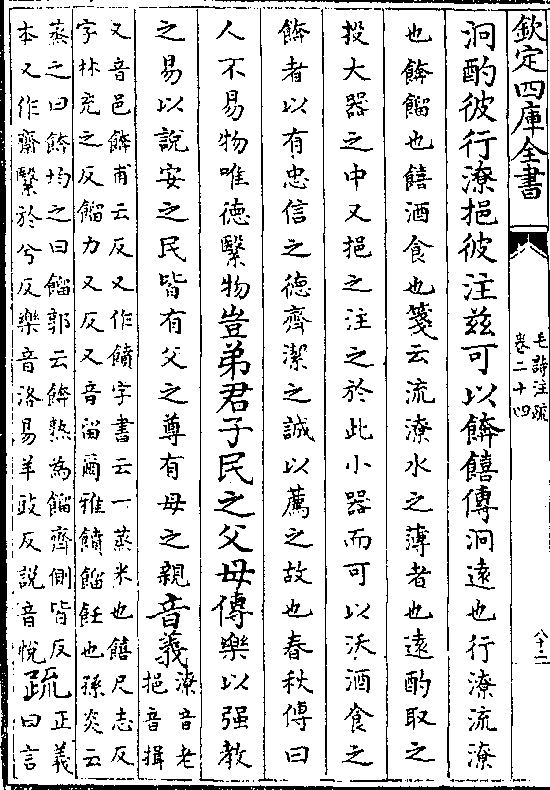 欽定四庫全書
毛詩注疏
卷二十四
八十二
泂酌彼行潦挹彼注兹可以餴饎傳泂遠也行潦流潦
也餴餾也饎酒食也箋云流潦水之薄者也遠酌取之
投大器之中又挹之注之於此小器而可以沃酒食之
餴者以有忠信之德齊潔之誠以薦之故也春秋傳曰
人不易物唯德繄物豈弟君子民之父母傳樂以强教
之易以說安之民皆有父之尊有母之親音義潦音老
挹音揖
又音邑餴甫云反又作饙字書云一蒸米也饎尺志反
字林充之反餾力又反又音留爾雅饙餾飪也孫炎云
蒸之曰餴均之曰餾郭云餴熟為餾齊側皆反
本又作齋繄於兮反樂音洛易羊豉反說音悅疏正義
曰言